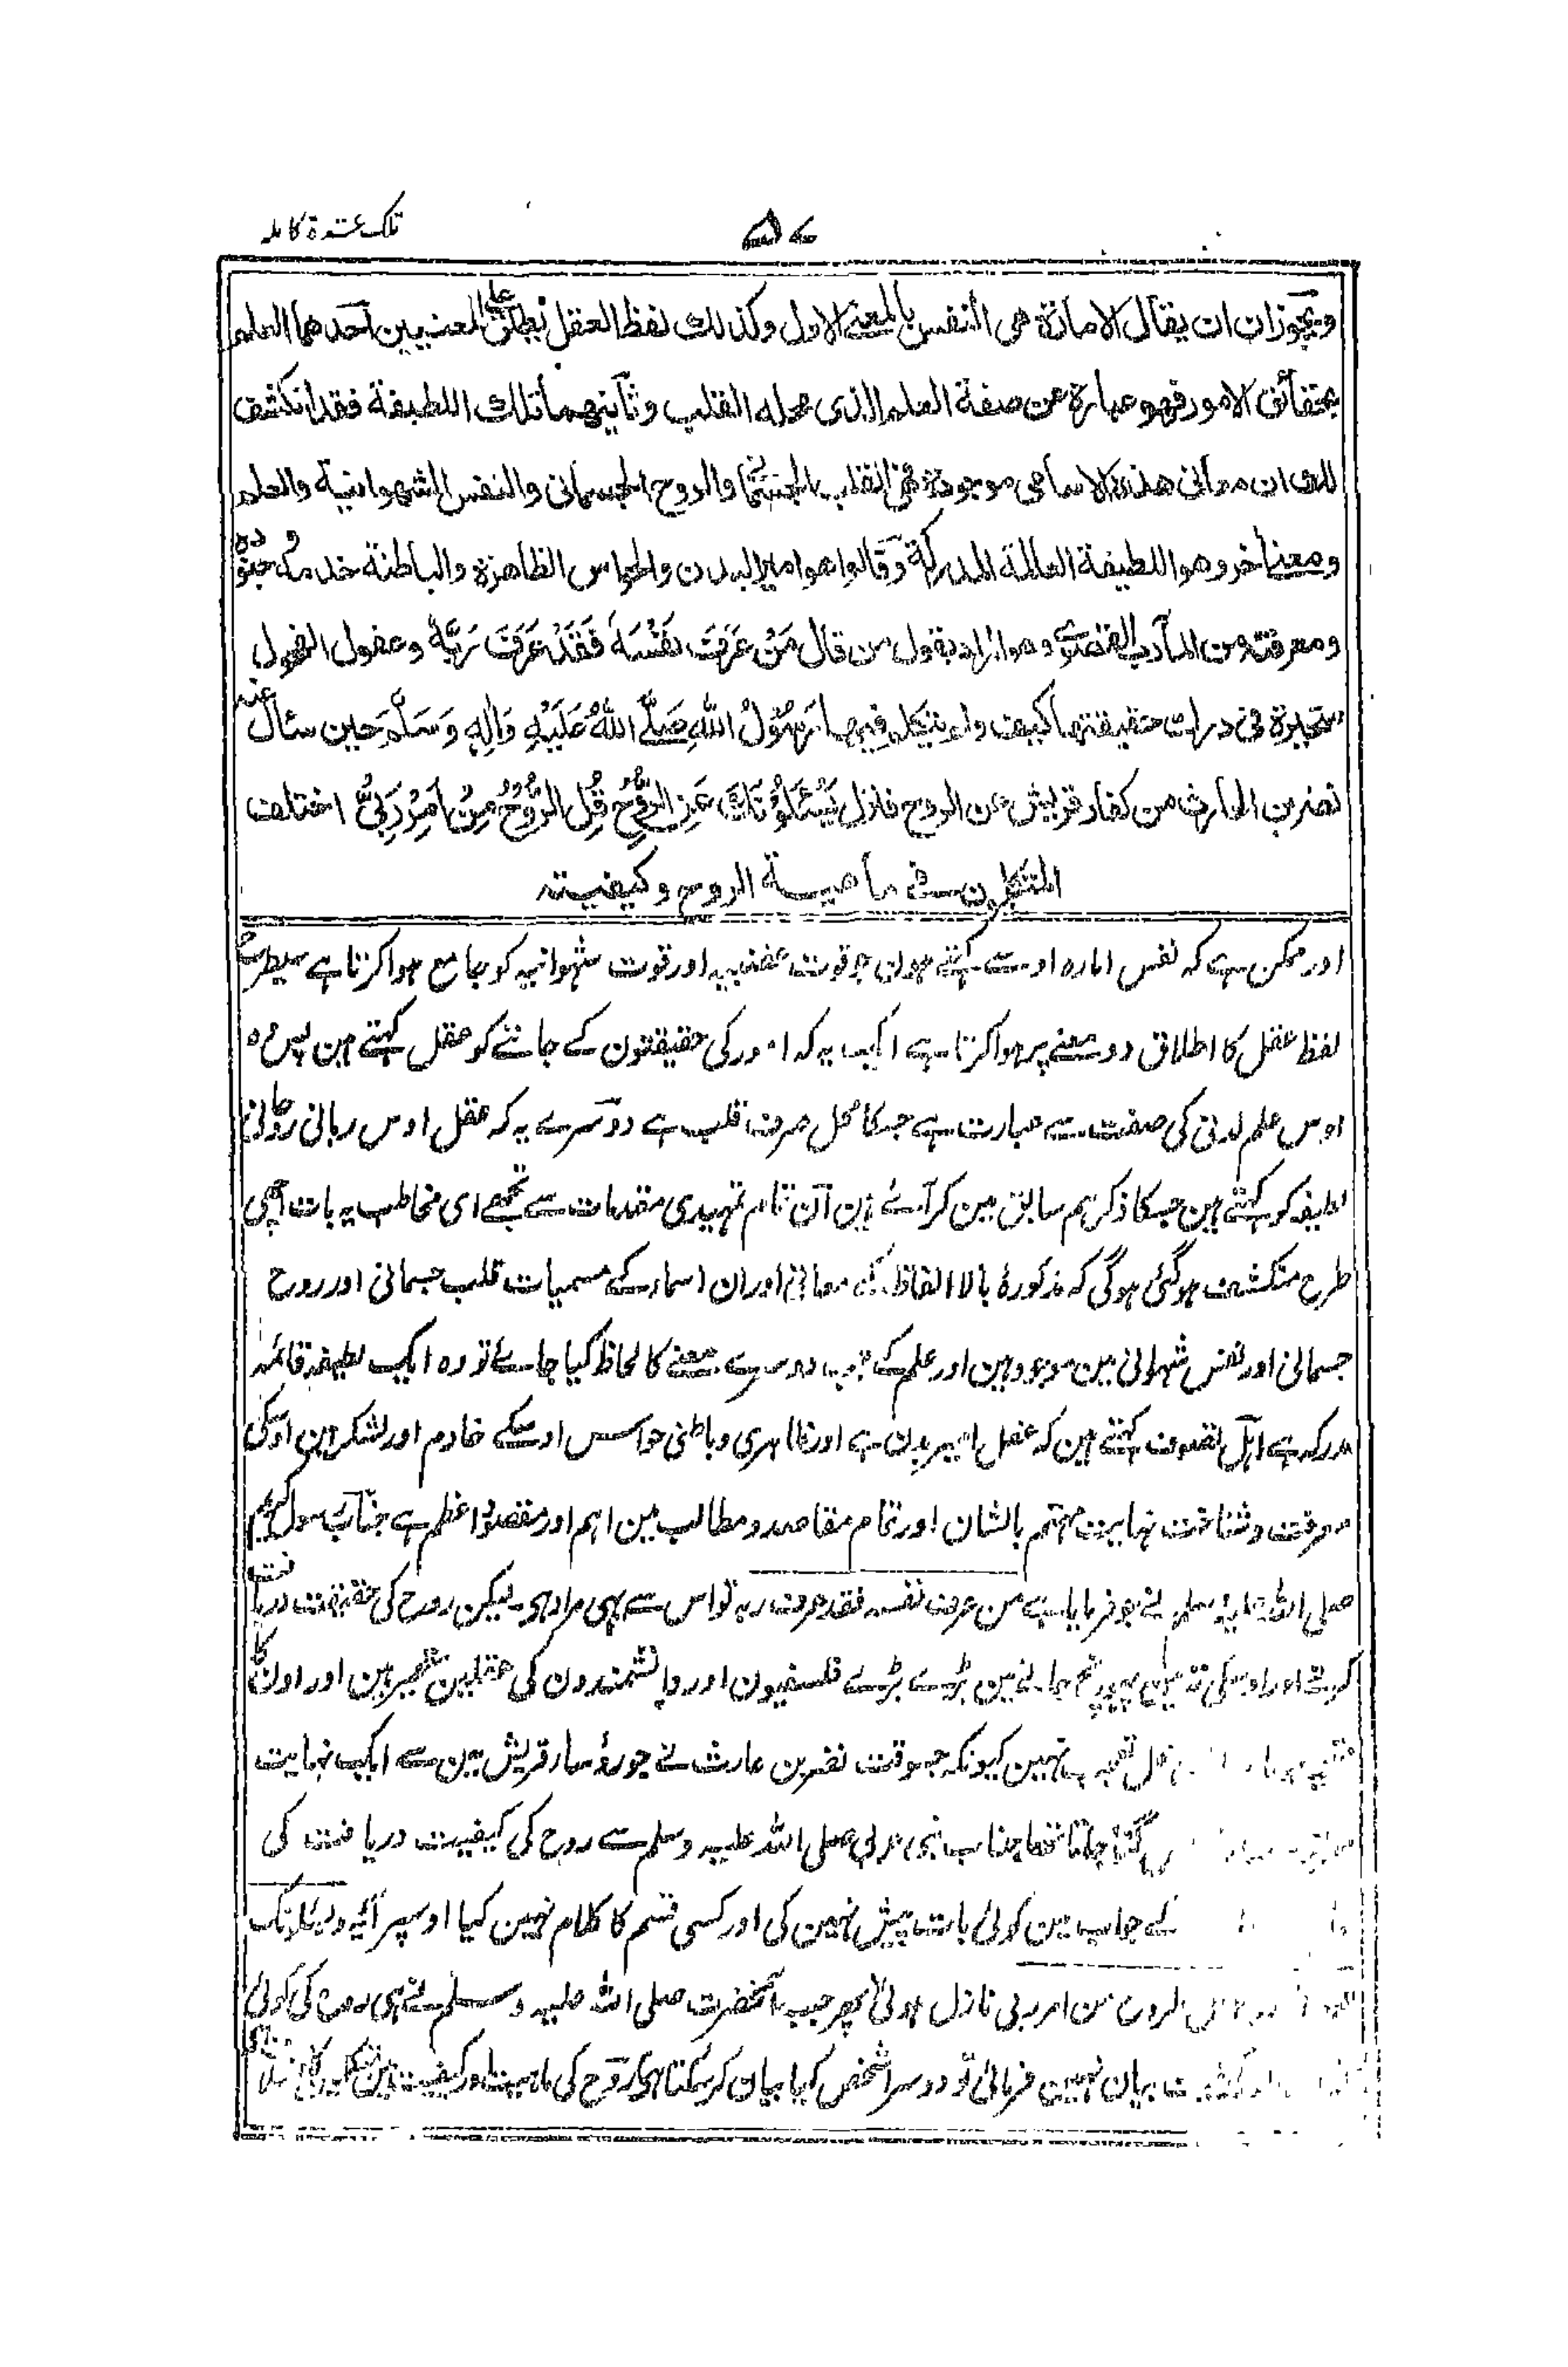 تلک عشرة کاملہ
۵۷
ويجوزان ان يقال الامارة هى النفس بالمعنے الاول وكذلك لفظ العقل يطلق على المعنيين احدهما العلم
بحقائق الامور فهو عبارة عن صفة العلم الذى محله القلب وثانيهما تلك اللطيفة فقد انكشف
لك ان معانى هذه الاسامى موجودة فى القلب الجسمانى والروح الجسمانى والنفس الشهوانية والعلم
ومعنا آخر وهو اللطيفة العالمة المدركة وقالوا هو امير البدن والحواس الظاهرة والباطنة خدمه جنوده
ومعرفته من المآرب القصوے وهو المراد بقول من قال مَنْ عَرَفَ نَفْسَهٗ فَقَدْ عَرَفَ رَبَّهٗ وعقول الفحول
متحيرة فى درك حقيقتها كيف ولم يتكلم فيها رَسُوْلُ اللهِ صَلَّے اللهُ عَلَيْهِ وَاٰلِهٖ وَسَلَّمَ حين سئال عنه
نضر بن الحارث من كفار قريش عن الروح فنزل يَسْئَلُوْنَكَ عَنِ الرُّوْحِ قُلِ الرُّوْحُ مِنْ اَمْرِ رَبِّىْ اختلف
المتكلمون فے ماهية الروح وكيفيته
اور ممکن ہے کہ نفس امارہ اوسے کہتے ہون جو قوت غضبیہ اور قوت شہوانیہ کو جامع ہوا کرتا ہے اسیطرح
لفظ عقل کا اطلاق دو معنے پر ہوا کرتا ہے ایک یہ کہ امور کی حقیقتون کے جاننے کو عقل کہتے ہین پس وہ
اوس علم لدنی کی صفت سے عبارت ہے جسکا محل صرف قلب ہے دوسرے یہ کہ عقل اوس ربانی روحانی
لطیفہ کو کہتے ہین جسکا ذکر ہم سابق مین کر آئے ہین ان تمام تمہیدی مقدمات سے تجھے ای مخاطب یہ بات اچھی
طرح منکشف ہو گئی ہو گی کہ مذکورۂ بالا الفاظ کے معانی اور ان اسماء کے مسمیات قلب جسمانی اور روح
جسمانی اور نفس شہوانی مین موجود ہین اور علم کے جب دوسرے معنے کا لحاظ کیا جائے تو وہ ایک لطیفہ
مدرکہ ہے اہل تصوف کہتے ہین کہ عقل امیر بدن ہے اور ظاہری و باطنی حواس اوسکے خادم اور لشکر ہین اوسکی
معرفت و شناخت نہایت مہتم بالشان اور تمام مقاصد و مطالب مین اہم اور مقصود اعظم ہے جناب رسول کریم
صلی اللہ علیہ وسلم نے جو فرمایا ہے من عرف نفسہ فقد عرف ربہ تو اس سے یہی مراد ہی۔ لیکن روح کی حقیقت دریافت
کرنے اور اوسکی تہ پہونچ جانے مین بڑے بڑے فلسفیون اور دانشمندون کی عقلین متحیر ہین اور اون کا
متحیر ہونا محل تعجب نہین کیونکہ جسوقت نضر بن حارث نے جو رؤسار قریش مین سے ایک نہایت
گنا جاتا تھا جناب نبی عربی صلی اللہ علیہ وسلم سے روح کی کیفیت دریافت کی
کے جواب مین کوئی بات پیش نہین کی اور کسی قسم کا کلام نہین کیا اوسپر آیہ ویسئلونک
الروح من امر ربی نازل ہوئی پھر جب آنحضرت صلی اللہ علیہ وسلم نے ہی روح کی کوئی
بیان نہین فرمائی تو دوسرا شخص کیا بیان کر سکتا ہی روح کی ماہیت اور کیفیت مین متکلمین کا